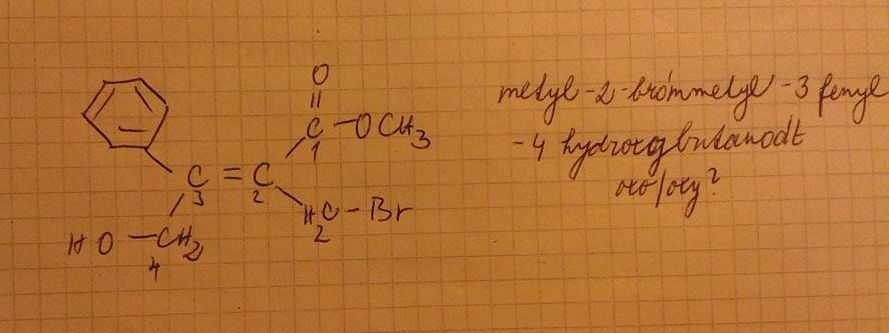 O
||
C - OCH3
1
C = C
3 2
H2C - Br
HO - CH2
4
metyl-2-brómmetyl-3 fenyl
-4 hydroxybutanoát
oxo/oxy?